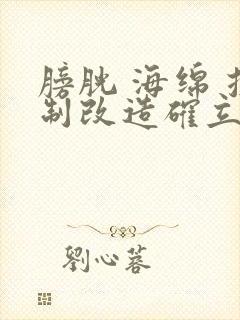 膀胱 海绵
制改造 確立
劉心蓉